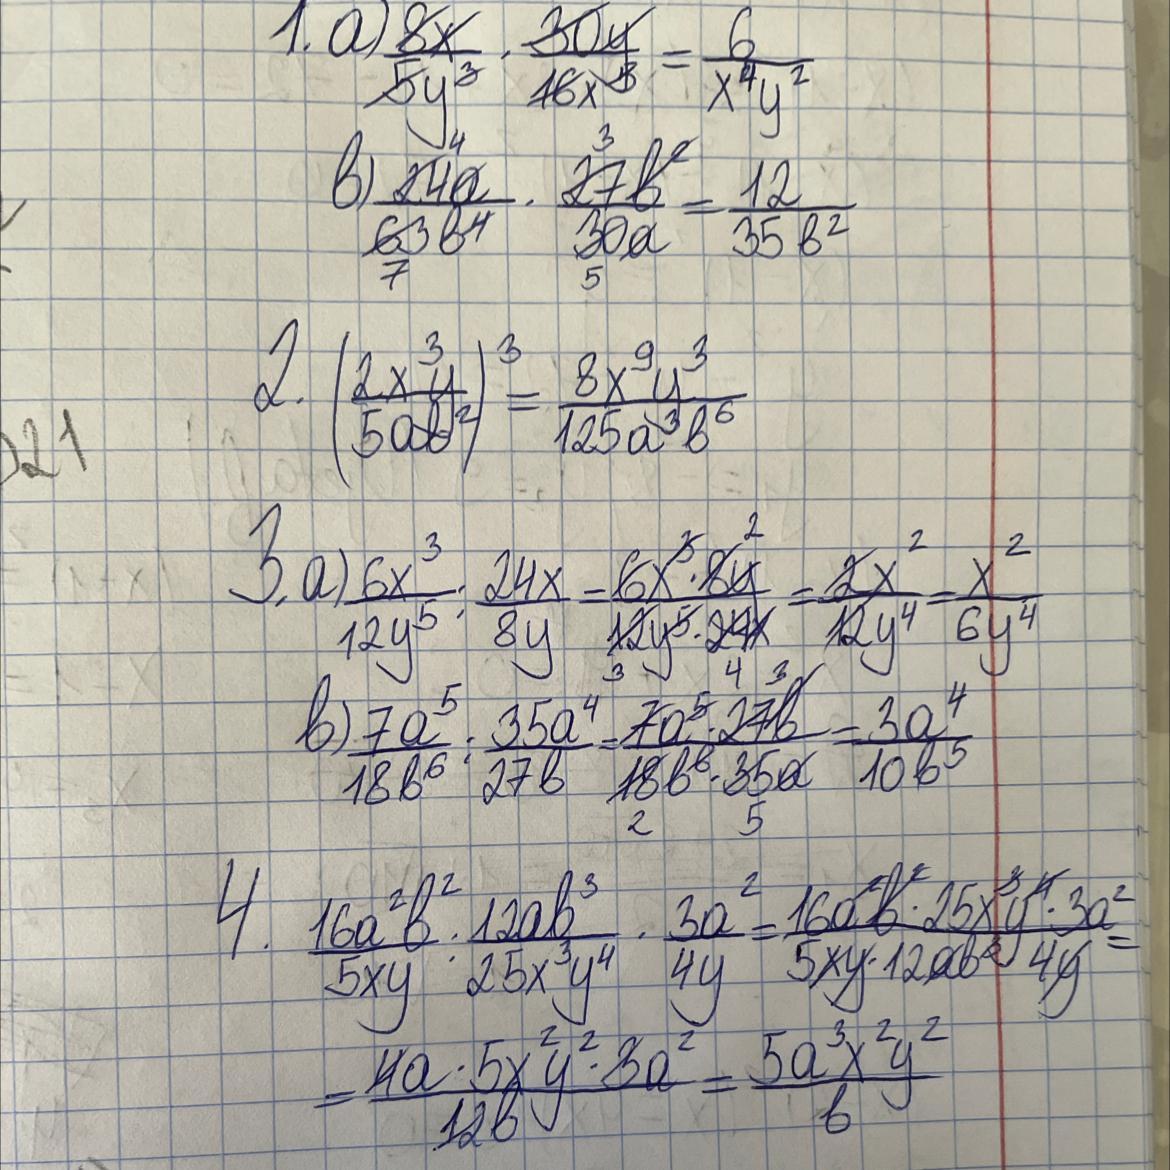 1. а) 8x/5y³ · 30y/16x⁵ = 6/x⁴y²
в) 24a/63b⁴ · 27b²/30a = 12/35b²
4 3 7 5
2. (2x³y/5ab²)³ = 8x⁹y³/125a³b⁶
021
3. а) 6x³/12y⁵ : 24x/8y = 6x³·8y/12y⁵·24x = 2x²/12y⁴ = x²/6y⁴
2 3 4
в) 7a⁵/18b⁶ : 35a⁴/27b = 7a⁵·27b/18b⁶·35a = 3a⁴/10b⁵
3 2 5
4. 16a²b²/5xy : 12ab³/25x³y⁴ · 3a²/4y = 16a²b²·25x³y⁴·3a²/5xy·12ab³ 4y =
= 4a·5x²y²·3a²/12b = 5a³x²y²/b